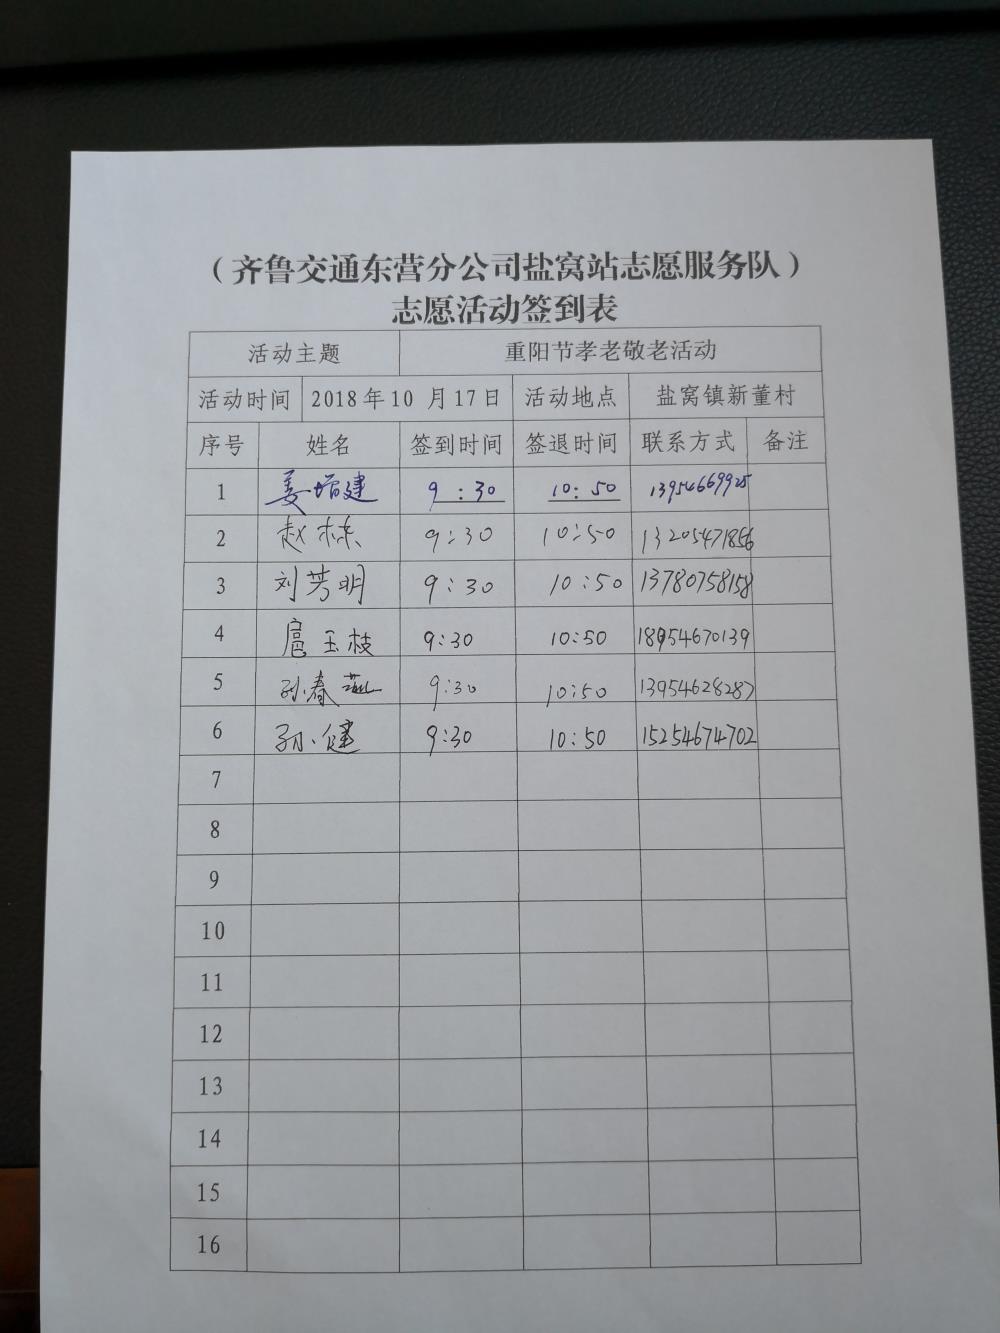 （齐鲁交通东营分公司盐窝站志愿服务队）
志愿活动签到表
活动主题 重阳节孝老敬老活动
活动时间 2018年10 月17日 活动地点 盐窝镇新董村
序号 姓名 签到时间 签退时间 联系方式 备注
1 姜增建 9:30 10:50 13954669925
2 赵栋 9:30 10:50 13205471856
3 刘芳明 9:30 10:50 13780758158
4 扈玉枝 9:30 10:50 18954670139
5 孙春燕 9:30 10:50 13954628287
6 孙健 9:30 10:50 15254674702
7
8
9
10
11
12
13
14
15
16